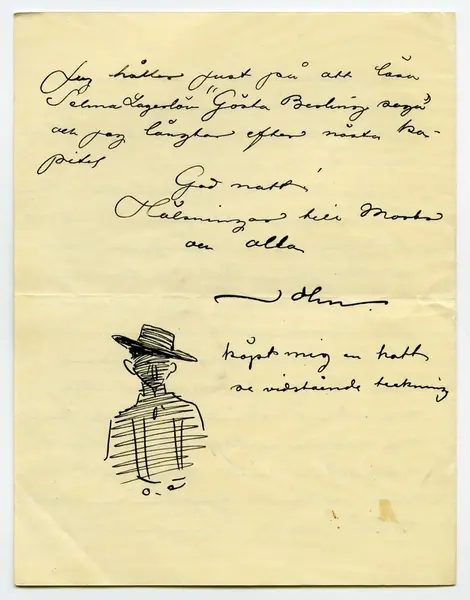 Jag håller just på att läsa
Selma Lagerlöv "Gösta Berling saga"
och jag längtar efter nästa ka-
pitel
God natt!
Hälsningar till Morbr
och alla
John.
köpt mig en hatt
se vidstående teckning